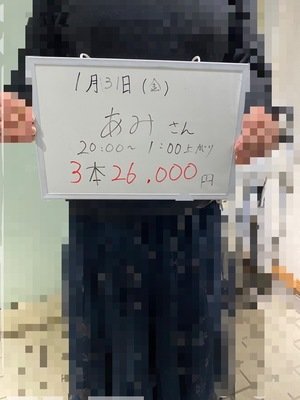 1月31日(金)
あみさん
20:00〜1:00上がり
3本26,000円